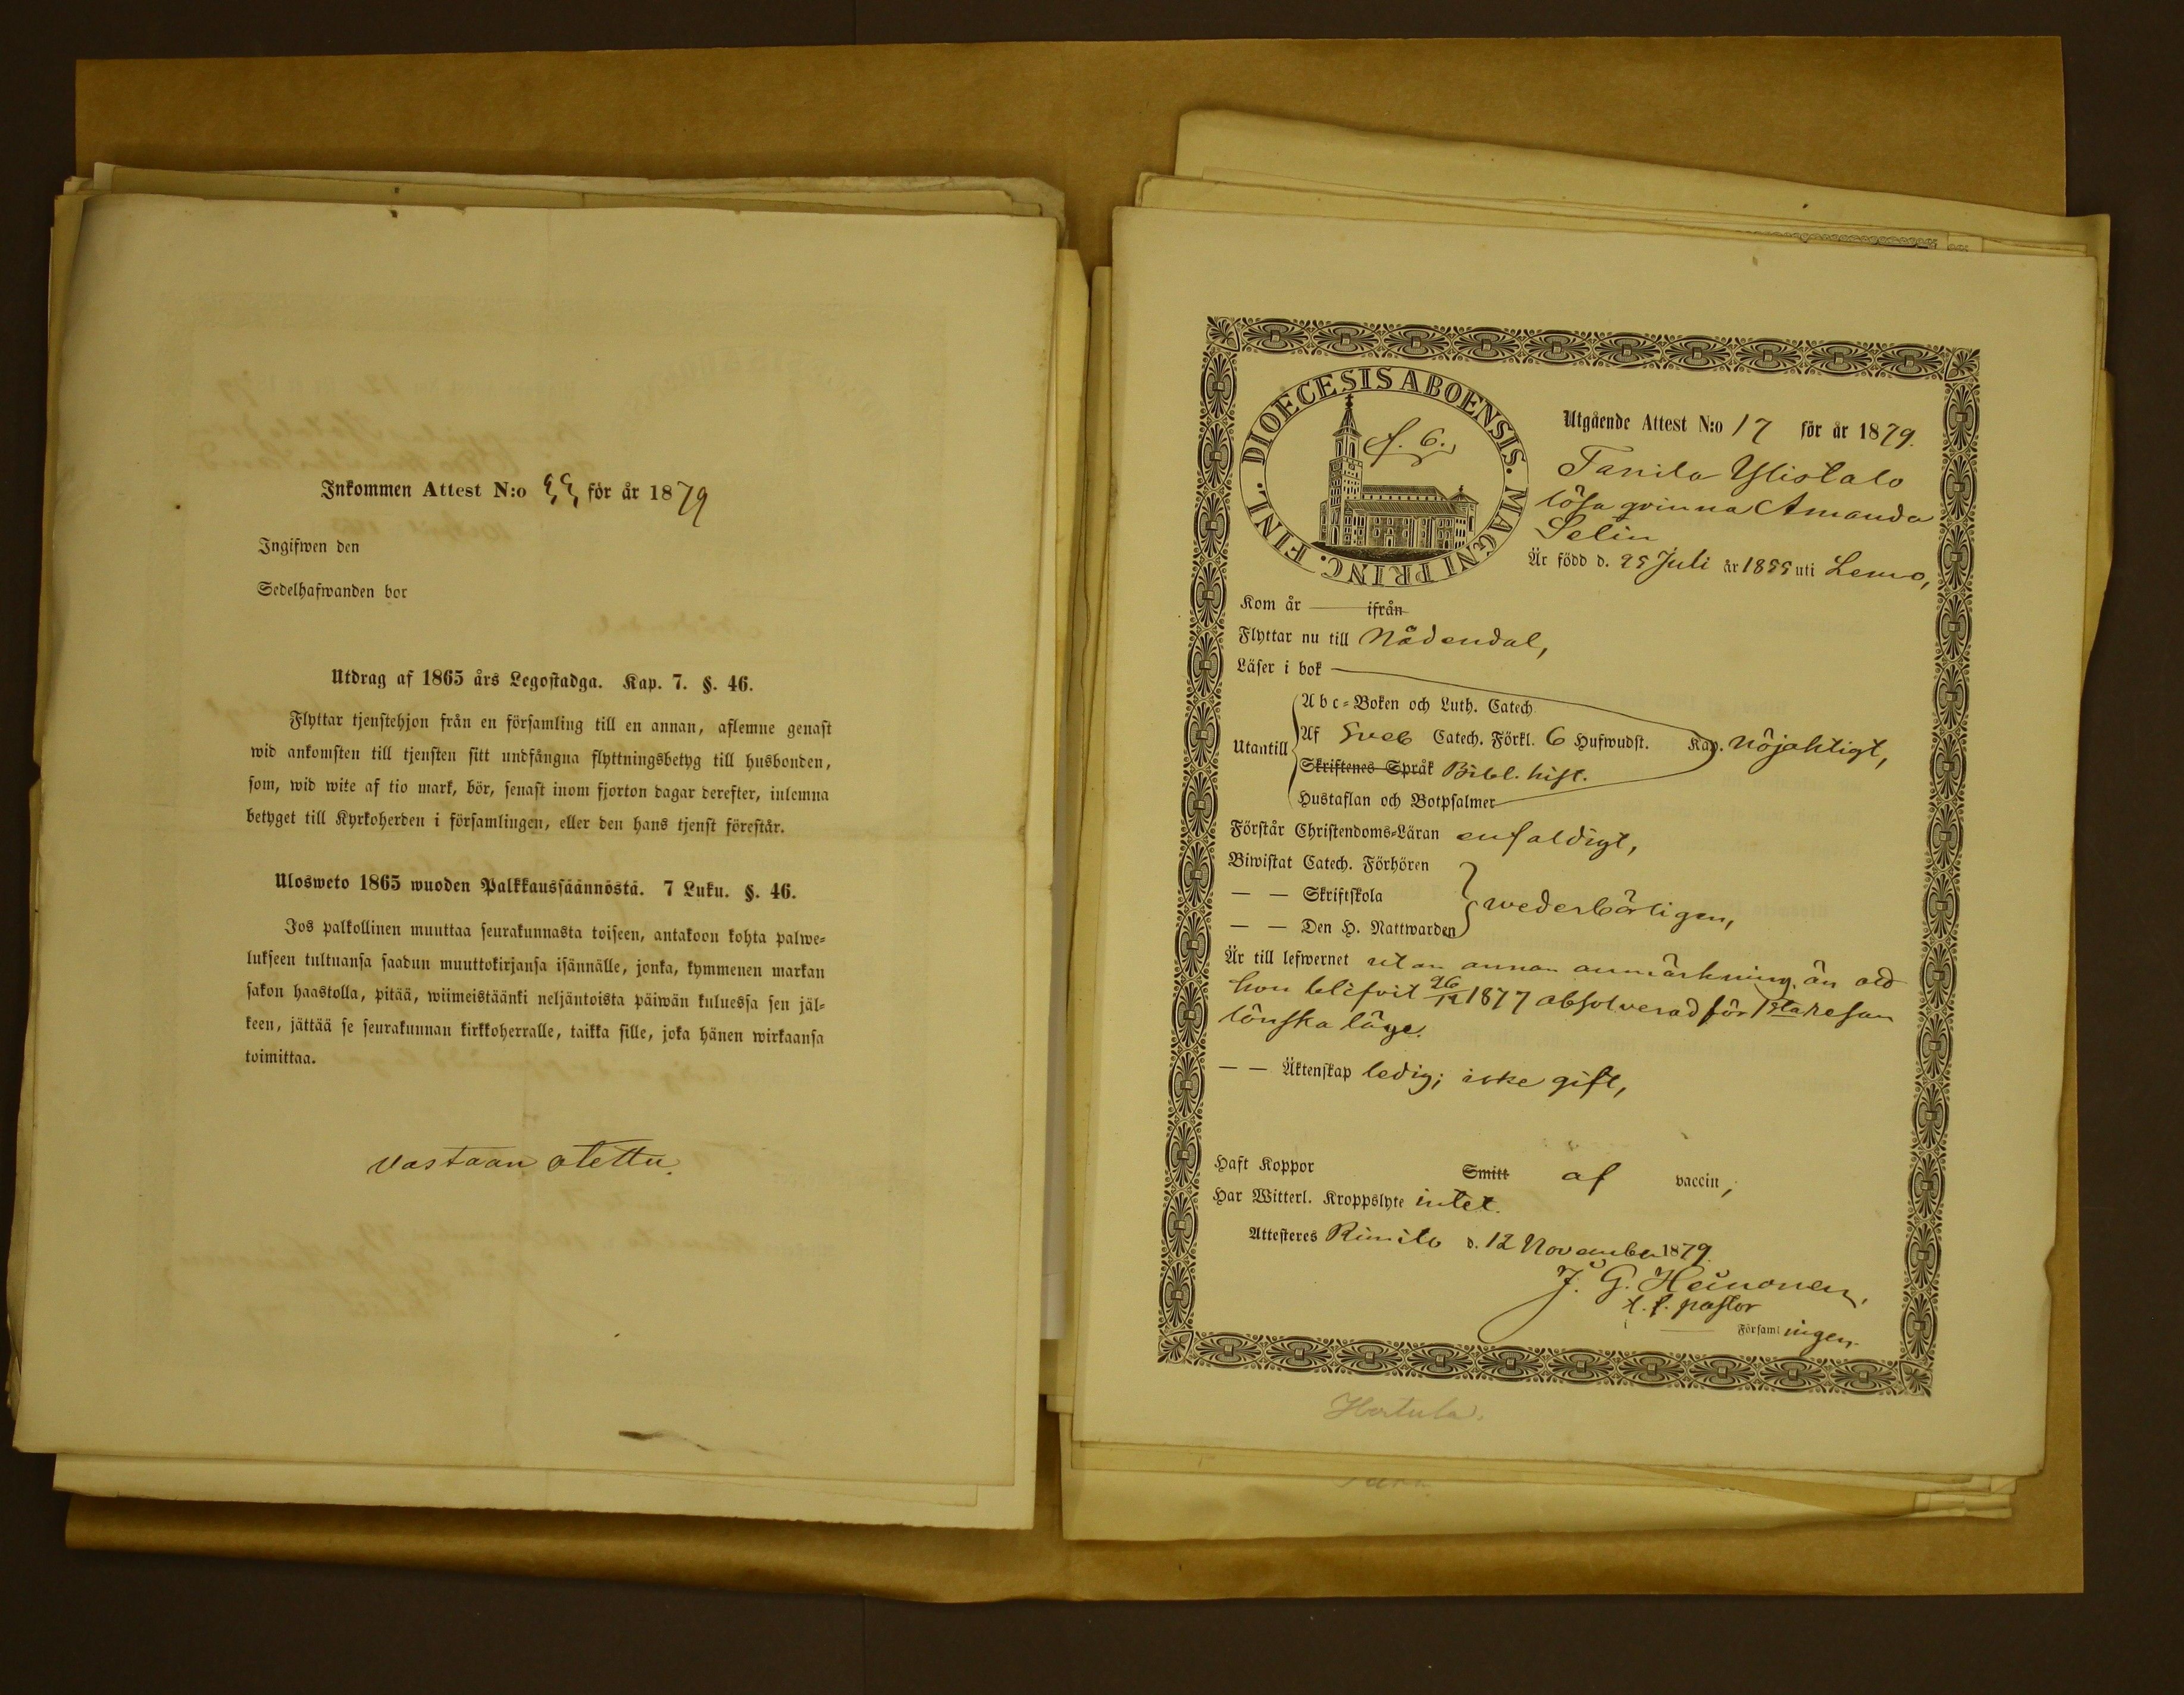 Inkommen Attest N:o 55 för år 1879
Ingifwen den
Sedelhafwanden bor
Utdrag af 1865 års Legostadga. Kap. 7. §. 46.
Flyttar tjenstehjon från en församling till en annan, aflemne genast
wid ankomsten till tjensten sitt undfångna flyttningsbetyg till husbonden,
som, wid wite af tio mark, bör, senast inom fjorton dagar derefter, inlemna
betyget till Kyrkoherden i församlingen, eller den hans tjenst förestår.
Ulosweto 1865 wuoden Palkkaussäännöstä. 7 Luku. §. 46.
Jos palkollinen muuttaa seurakunnasta toiseen, antakoon kohta palwe-
lukseen tultuansa saadun muuttokirjansa isännälle, jonka, kymmenen markan
sakon haastolla, pitää, wiimeistäänki neljäntoista päiwän kuluessa sen jäl-
keen, jättää se seurakunnan kirkkoherralle, taikka sille, joka hänen wirkaansa
toimittaa.
vastaan otettu.
DIOECESIS ABOENSIS. MAGNI PRINC. FINL.
f. 6.
Utgående Attest N:o 17 för år 1879.
Tanila Ylistalo
lösa qvinna Amanda
Selin
Är född d. 25 Juli år 1855 uti Lemo,
Kom år ifrån
Flyttar nu till Nådendal,
Läser i bok
Abc-Boken och Luth. Catech.
Utantill Af Sveb Catech. Förkl. 6 Hufwudst. Kap. nöjaktigt,
Skriftenes Språk Bibl. hist.
Hustaflan och Botpsalmer
Förstår Christendoms-Läran enfaldigt,
Biwistat Catech. Förhören
— — Skriftskola wederbörligen,
— — Den H. Nattwarden
Är till lefwernet utan annan anmärkning, än att
hon blifvit 26/12 1877 absolverad för 1sta resan
lönska läge.
— — Äktenskap ledig; icke gift,
Haft Koppor Smitt af vaccin,
Har Witterl. Kroppslyte intet.
Attesteres Rimito d. 12 November 1879.
J. G. Heinonen,
t. f. pastor
i Församlingen.
Hertula.